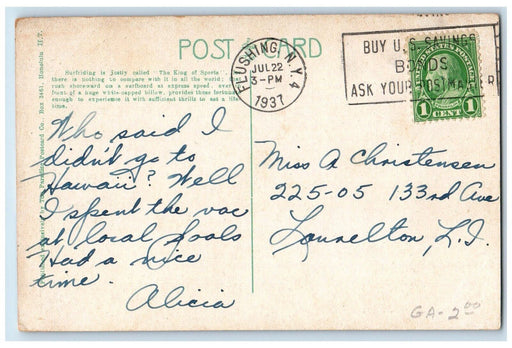 POST CARD
Surfriding is Justly called "The King of Sports"
there is nothing to compare with it in all the world. The
rush shoreward on a surfboard at express speed,
of a huge white-capped billow, provides those
enough to experience it with sufficient thrills to last a life
time.
FLUSHING, N.Y. 4
JUL 22
3-PM
1937
BUY U.S. SAVINGS
BONDS
ASK YOUR POSTMASTER
UNITED STATES POSTAGE
1 CENT 1
Postcard Co., Box 3461, Honolulu H.T.
Who said I
didn't go to
Hawaii? Well
I spent the vac
at local pools
Had a nice
time.
Alicia
Miss A Christensen
225-05 133rd Ave
Laurelton, L.I.
GA-2.00